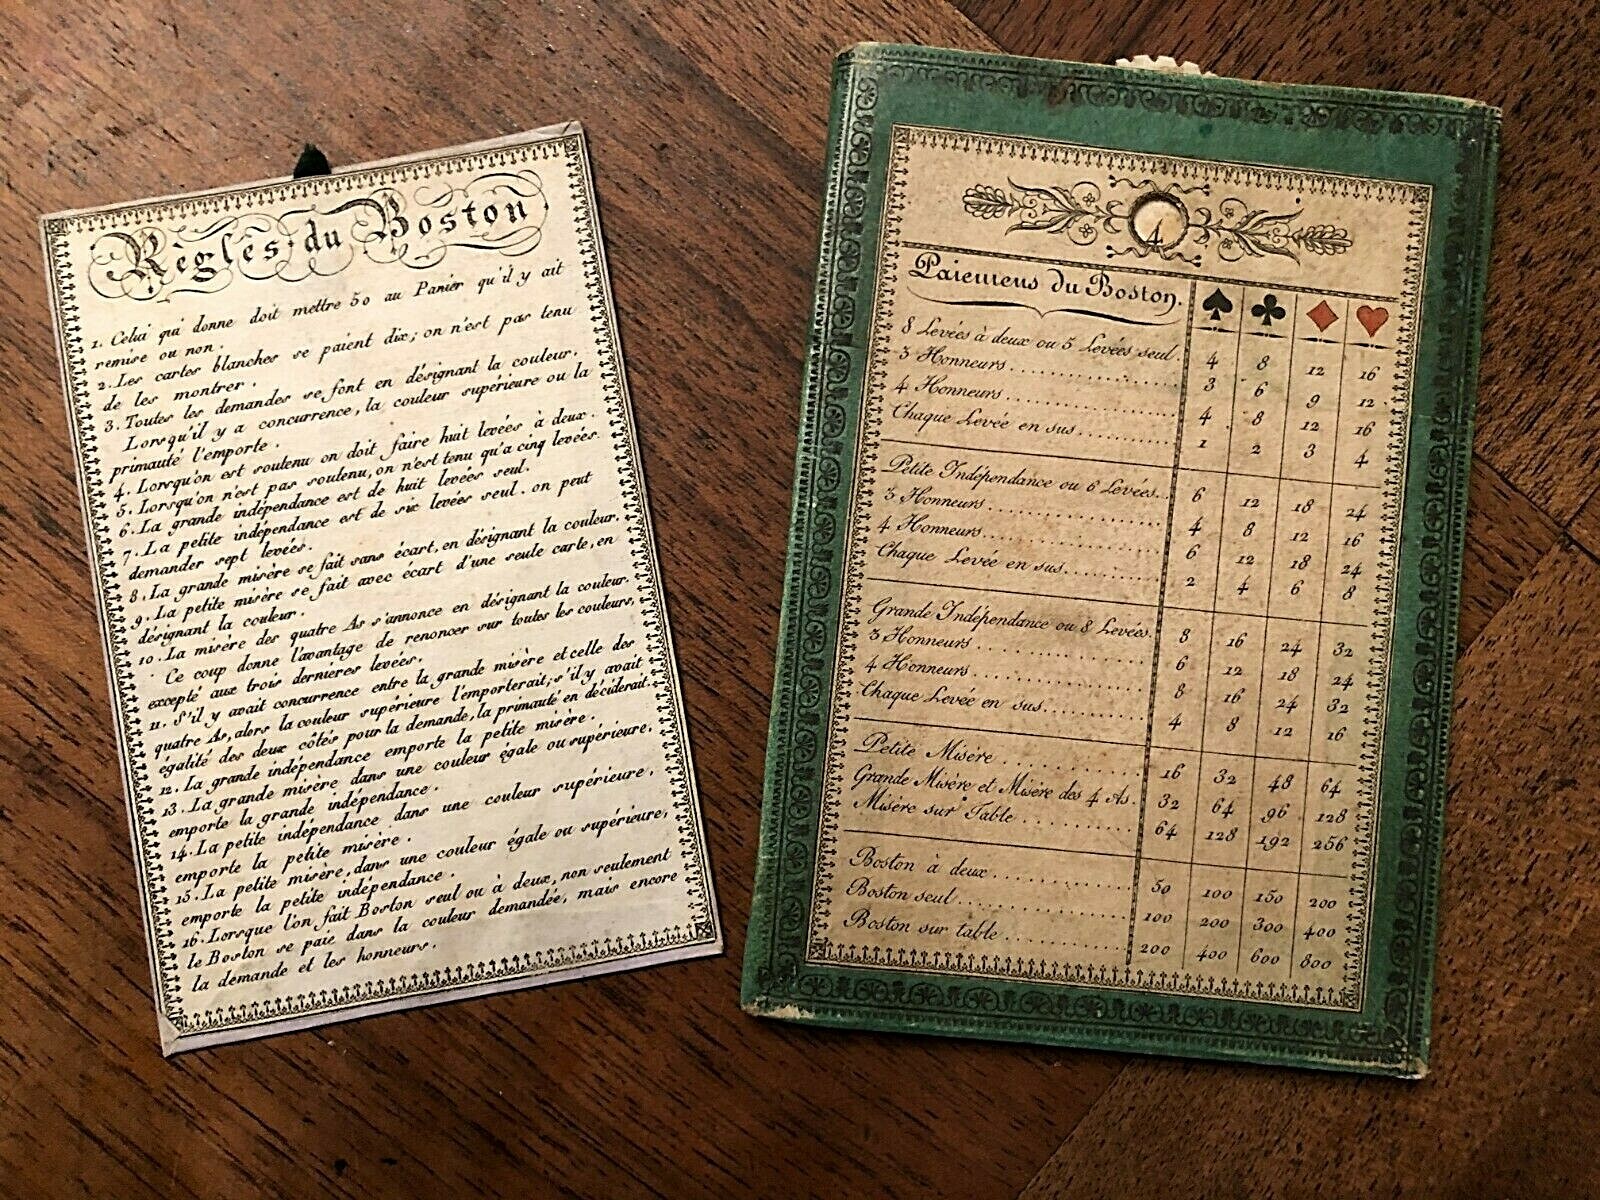 Règles du Boston
1. Celui qui donne doit mettre 50 au Panier qu'il y ait
remise ou non.
2. Les cartes blanches se paient dix; on n'est pas tenu
de les montrer.
3. Toutes les demandes se font en désignant la couleur.
Lorsqu'il y a concurrence, la couleur supérieure ou la
primauté l'emporte.
4. Lorsqu'on est soutenu on doit faire huit levées à deux.
5. Lorsqu'on n'est pas soutenu, on n'est tenu qu'a cinq levées.
6. La grande indépendance est de huit levées seul.
7. La petite indépendance est de six levées seul. on peut
demander sept levées.
8. La grande misère se fait sans écart, en désignant la couleur.
9. La petite misère se fait avec écart d'une seule carte, en
désignant la couleur.
10. La misère des quatre As s'annonce en désignant la couleur.
Ce coup donne l'avantage de renoncer sur toutes les couleurs,
excepté aux trois dernieres levées.
11. S'il y avait concurrence entre la grande misère et celle des
quatre As, alors la couleur supérieure l'emporterait; s'il y avait
égalité des deux côtés pour la demande, la primauté en déciderait.
12. La grande indépendance emporte la petite misère.
13. La grande misère dans une couleur égale ou supérieure,
emporte la grande indépendance.
14. La petite indépendance dans une couleur supérieure,
emporte la petite misère.
15. La petite misère, dans une couleur égale ou supérieure,
emporte la petite indépendance.
16. Lorsque l'on fait Boston seul ou à deux, non seulement
le Boston se paie dans la couleur demandée, mais encore
la demande et les honneurs.
4
Paiemens du Boston. ♠ ♣ ♦ ♥
8 Levées à deux ou 5 Levées seul. 4 8 12 16
3 Honneurs.................... 3 6 9 12
4 Honneurs.................... 4 8 12 16
Chaque Levée en sus............ 1 2 3 4
Petite Indépendance ou 6 Levées... 6 12 18 24
3 Honneurs.................... 4 8 12 16
4 Honneurs.................... 6 12 18 24
Chaque Levée en sus............ 2 4 6 8
Grande Indépendance ou 8 Levées. 8 16 24 32
3 Honneurs.................... 6 12 18 24
4 Honneurs.................... 8 16 24 32
Chaque Levée en sus............ 4 8 12 16
Petite Misère .................. 16 32 48 64
Grande Misère et Misère des 4 As. 32 64 96 128
Misère sur Table................ 64 128 192 256
Boston à deux.................. 50 100 150 200
Boston seul.................... 100 200 300 400
Boston sur table................ 200 400 600 800